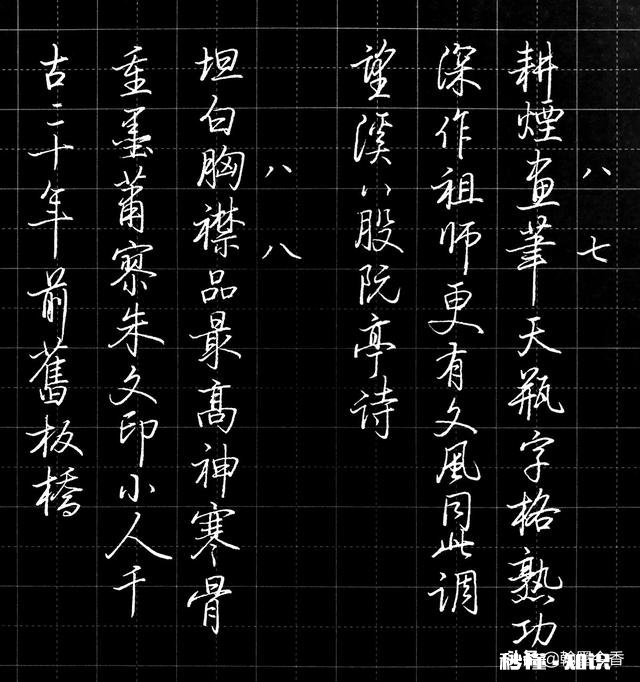 八七
耕煙畫筆天瓶字格熟功
深作祖师更有文風同此调
望溪八股阮亭诗
八八
坦白胸襟品最高神寒骨
重墨蕭寥朱文印小人千
古二十年前舊板橋
秒懂·知识